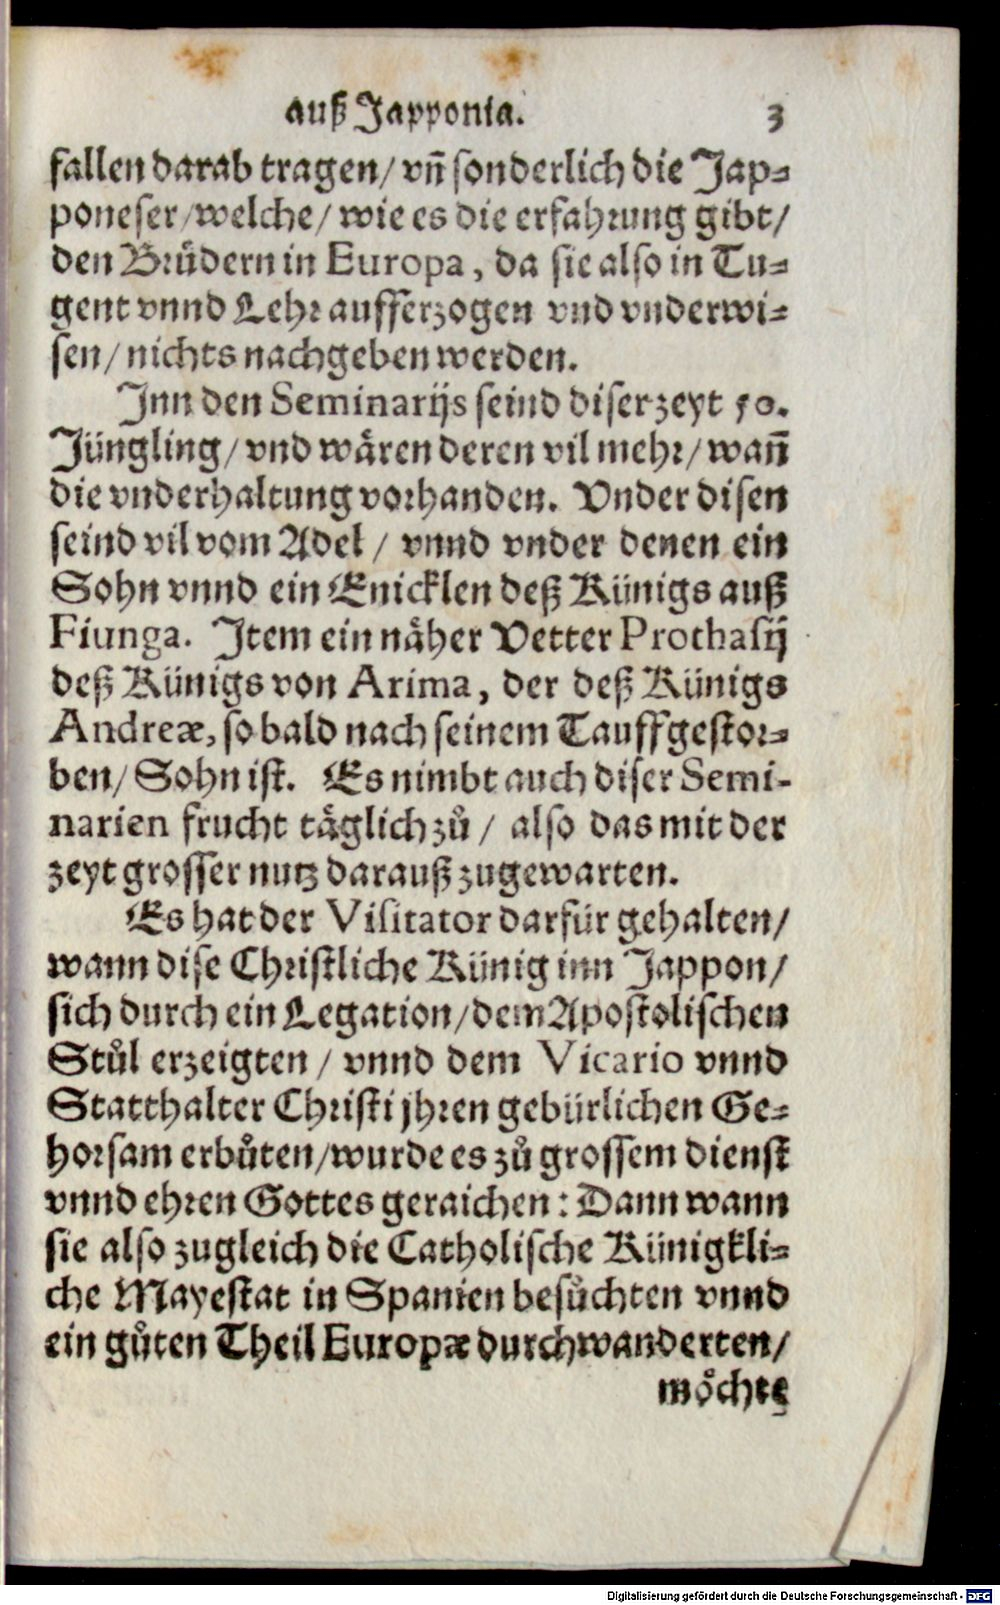 auß Japponia. 3
fallen darab tragen/ vñ sonderlich die Jap-
poneser/welche/ wie es die erfahrung gibt/
den Brůdern in Europa, da sie also in Tu-
gent vnnd Lehr aufferzogen vnd vnderwi-
sen/ nichts nachgeben werden.
Jnn den Seminarijs seind diser zeyt 50.
Jüngling/ vnd wären deren vil mehr/ wañ
die vnderhaltung vorhanden. Vnder disen
seind vil vom Adel / vnnd vnder denen ein
Sohn vnnd ein Enicklen deß Künigs auß
Fiunga. Jtem ein näher Vetter Prothasij
deß Künigs von Arima, der deß Künigs
Andreæ, so bald nach seinem Tauff gestor-
ben/ Sohn ist. Es nimbt auch diser Semi-
narien frucht täglich zů / also das mit der
zeyt grosser nutz darauß zugewarten.
Es hat der Visitator darfür gehalten/
wann dise Christliche Künig inn Jappon/
sich durch ein Legation/dem Apostolischen
Stůl erzeigten / vnnd dem Vicario vnnd
Statthalter Christi jhren gebürlichen Ge-
horsam erbůten/wurde es zů grossem dienst
vnnd ehren Gottes geraichen: Dann wann
sie also zugleich die Catholische Künigkli-
che Mayestat in Spanien besůchten vnnd
ein gůten Theil Europæ durchwanderten/
möchte
Digitalisierung gefördert durch die Deutsche Forschungsgemeinschaft - DFG